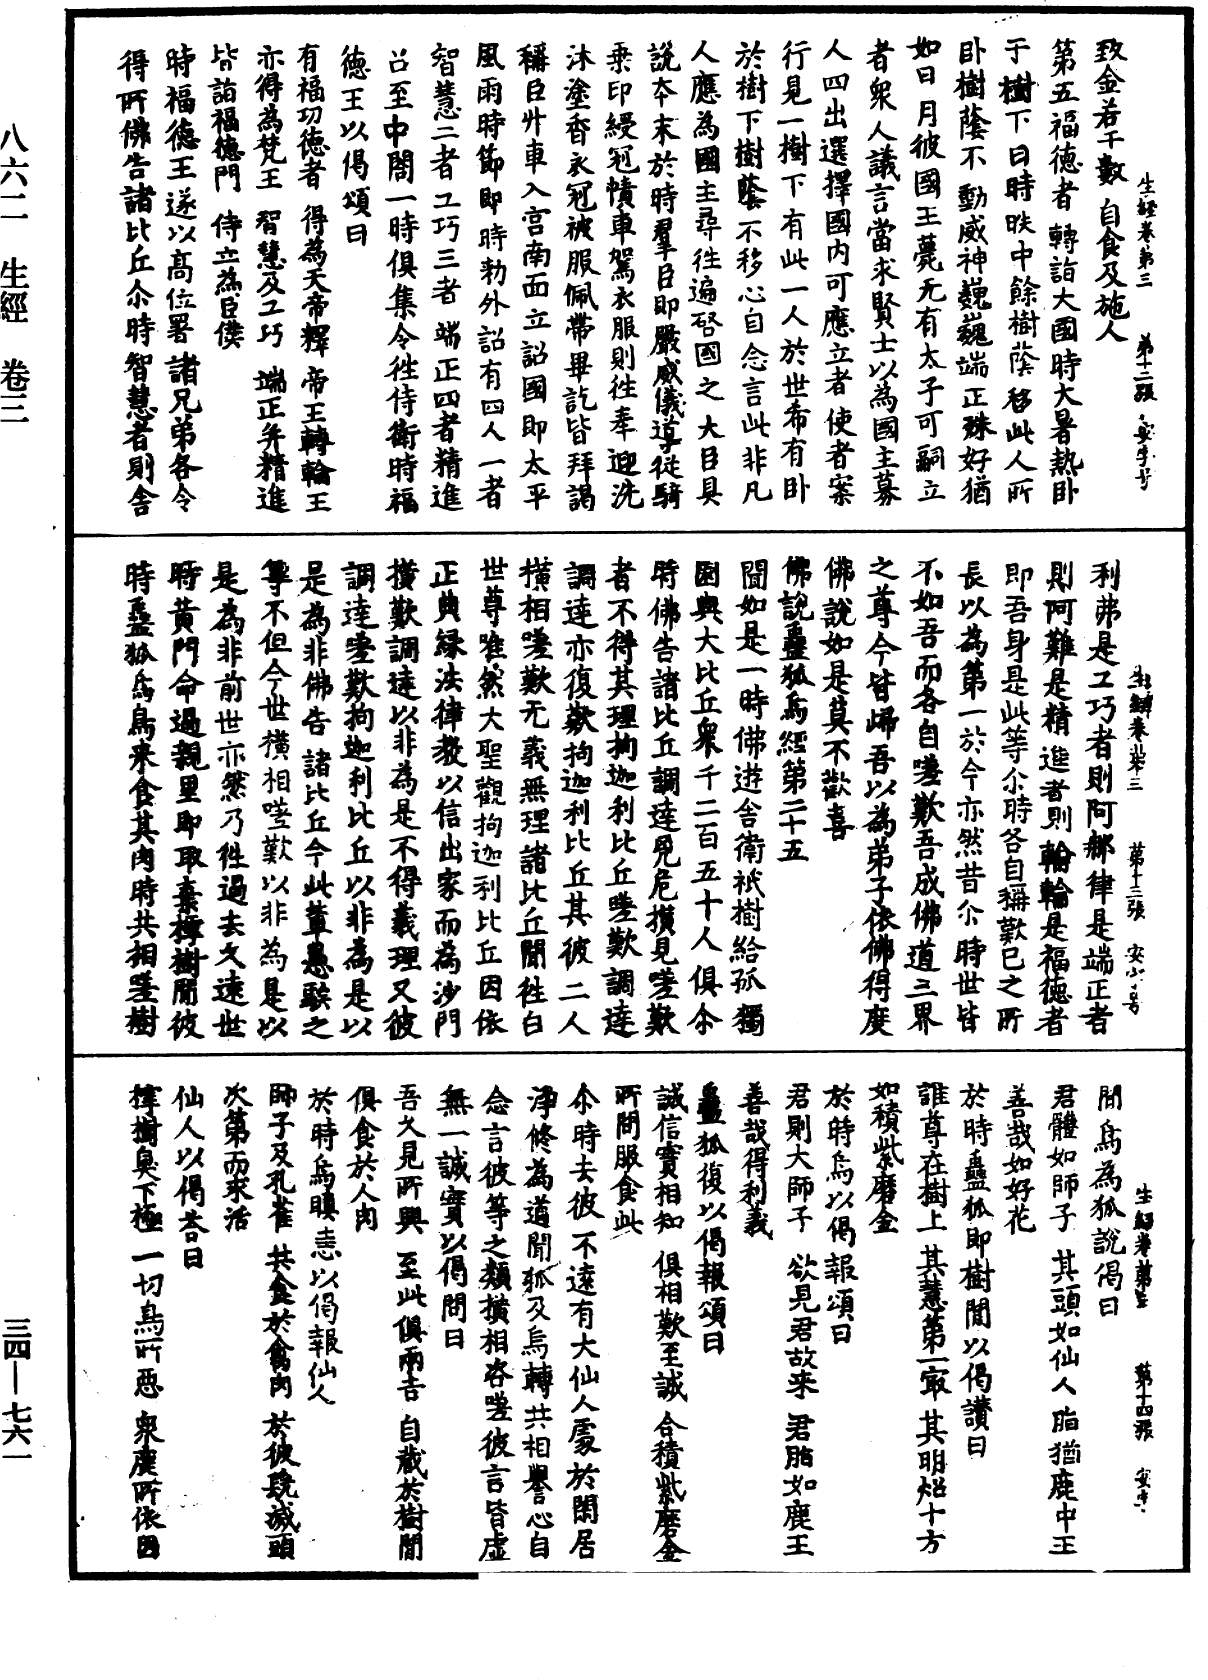 八六二　生經　卷三
三四—七六一
生經卷第三　第十二張　安字号
致金若干數　自食及施人
第五福德者　轉詣大國時大暑熱卧
于樹下日時昳中餘樹蔭移此人所
卧樹蔭不動威神巍巍端正殊好猶
如日月彼國王薨无有太子可嗣立
者衆人議言當求賢士以為國主募
人四出選擇國內可應立者使者案
行見一樹下有此一人於世希有卧
於樹下樹蔭不移心自念言此非凡
人應為國主尋往遍啓國之大臣具
說本末於時羣臣即嚴威儀導從騎
乗印綬冠幘車駕衣服則往奉迎洗
沐塗香衣冠被服佩帶畢訖皆拜謁
稱臣升車入宮南面立詔國即太平
風雨時節即時勑外詔有四人一者
智慧二者工巧三者端正四者精進
召至中閤一時俱集令往侍衛時福
德王以偈頌曰
有福功德者　得為天帝釋　帝王轉輪王
亦得為梵王　智慧及工巧　端正并精進
皆詣福德門　侍立為臣僕
時福德王遂以高位署諸兄弟各令
得所佛告諸比丘尒時智慧者則舎
生經卷第三　第十三張　安字号
利弗是工巧者則阿那律是端正者
則阿難是精進者則輪輪是福德者
即吾身是此等尒時各自稱歎已之所
長以為第一於今亦然昔尒時世皆
不如吾而各自嗟歎吾成佛道三界
之尊今皆歸吾以為弟子依佛得度
佛說如是莫不歡喜
佛說蠱狐烏經第二十五
聞如是一時佛遊舎衛祇樹給孤獨
園與大比丘衆千二百五十人俱尒
時佛告諸比丘調達凶危横見嗟歎
者不得其理拘迦利比丘嗟歎調達
調達亦復歎拘迦利比丘其彼二人
横相嗟歎无義無理諸比丘聞往白
世尊唯然大聖觀拘迦利比丘因依
正典緣法律教以信出家而為沙門
横歎調達以非為是不得義理又彼
調達嗟歎拘迦利比丘以非為是以
是為非佛告諸比丘今此輩愚騃之
等不但今世横相嗟歎以非為是以
是為非前世亦然乃往過去久遠世
時黄門命過親里即取棄樗樹閒彼
時蠱狐烏鳥来食其肉時共相嗟樹
生經卷第三　第十四張　安字
間烏為狐說偈曰
君體如師子　其頭如仙人　脂猶鹿中王
善哉如好花
於時蠱狐即樹間以偈讃曰
誰尊在樹上　其慧第一㝡　其明炤十方
如積紫磨金
於時烏以偈報頌曰
君則大師子　欲見君故来　君脂如鹿王
善哉得利義
蠱狐復以偈報頌曰
誠信實相知　俱相歎至誠　合積紫磨金
所問服食此
尒時去彼不遠有大仙人處於閑居
淨修為道聞狐及烏轉共相譽心自
念言彼等之類横相咨嗟彼言皆虛
無一誠實以偈問曰
吾久見所興　至此俱兩舌　自藏於樹間
俱食於人肉
於時烏瞋恚以偈報仙人
師子及孔雀　共食於禽肉　於彼髡滅頭
次第而求活
仙人以偈荅曰
樗樹臭下極　一切鳥所惡　衆鹿所依因